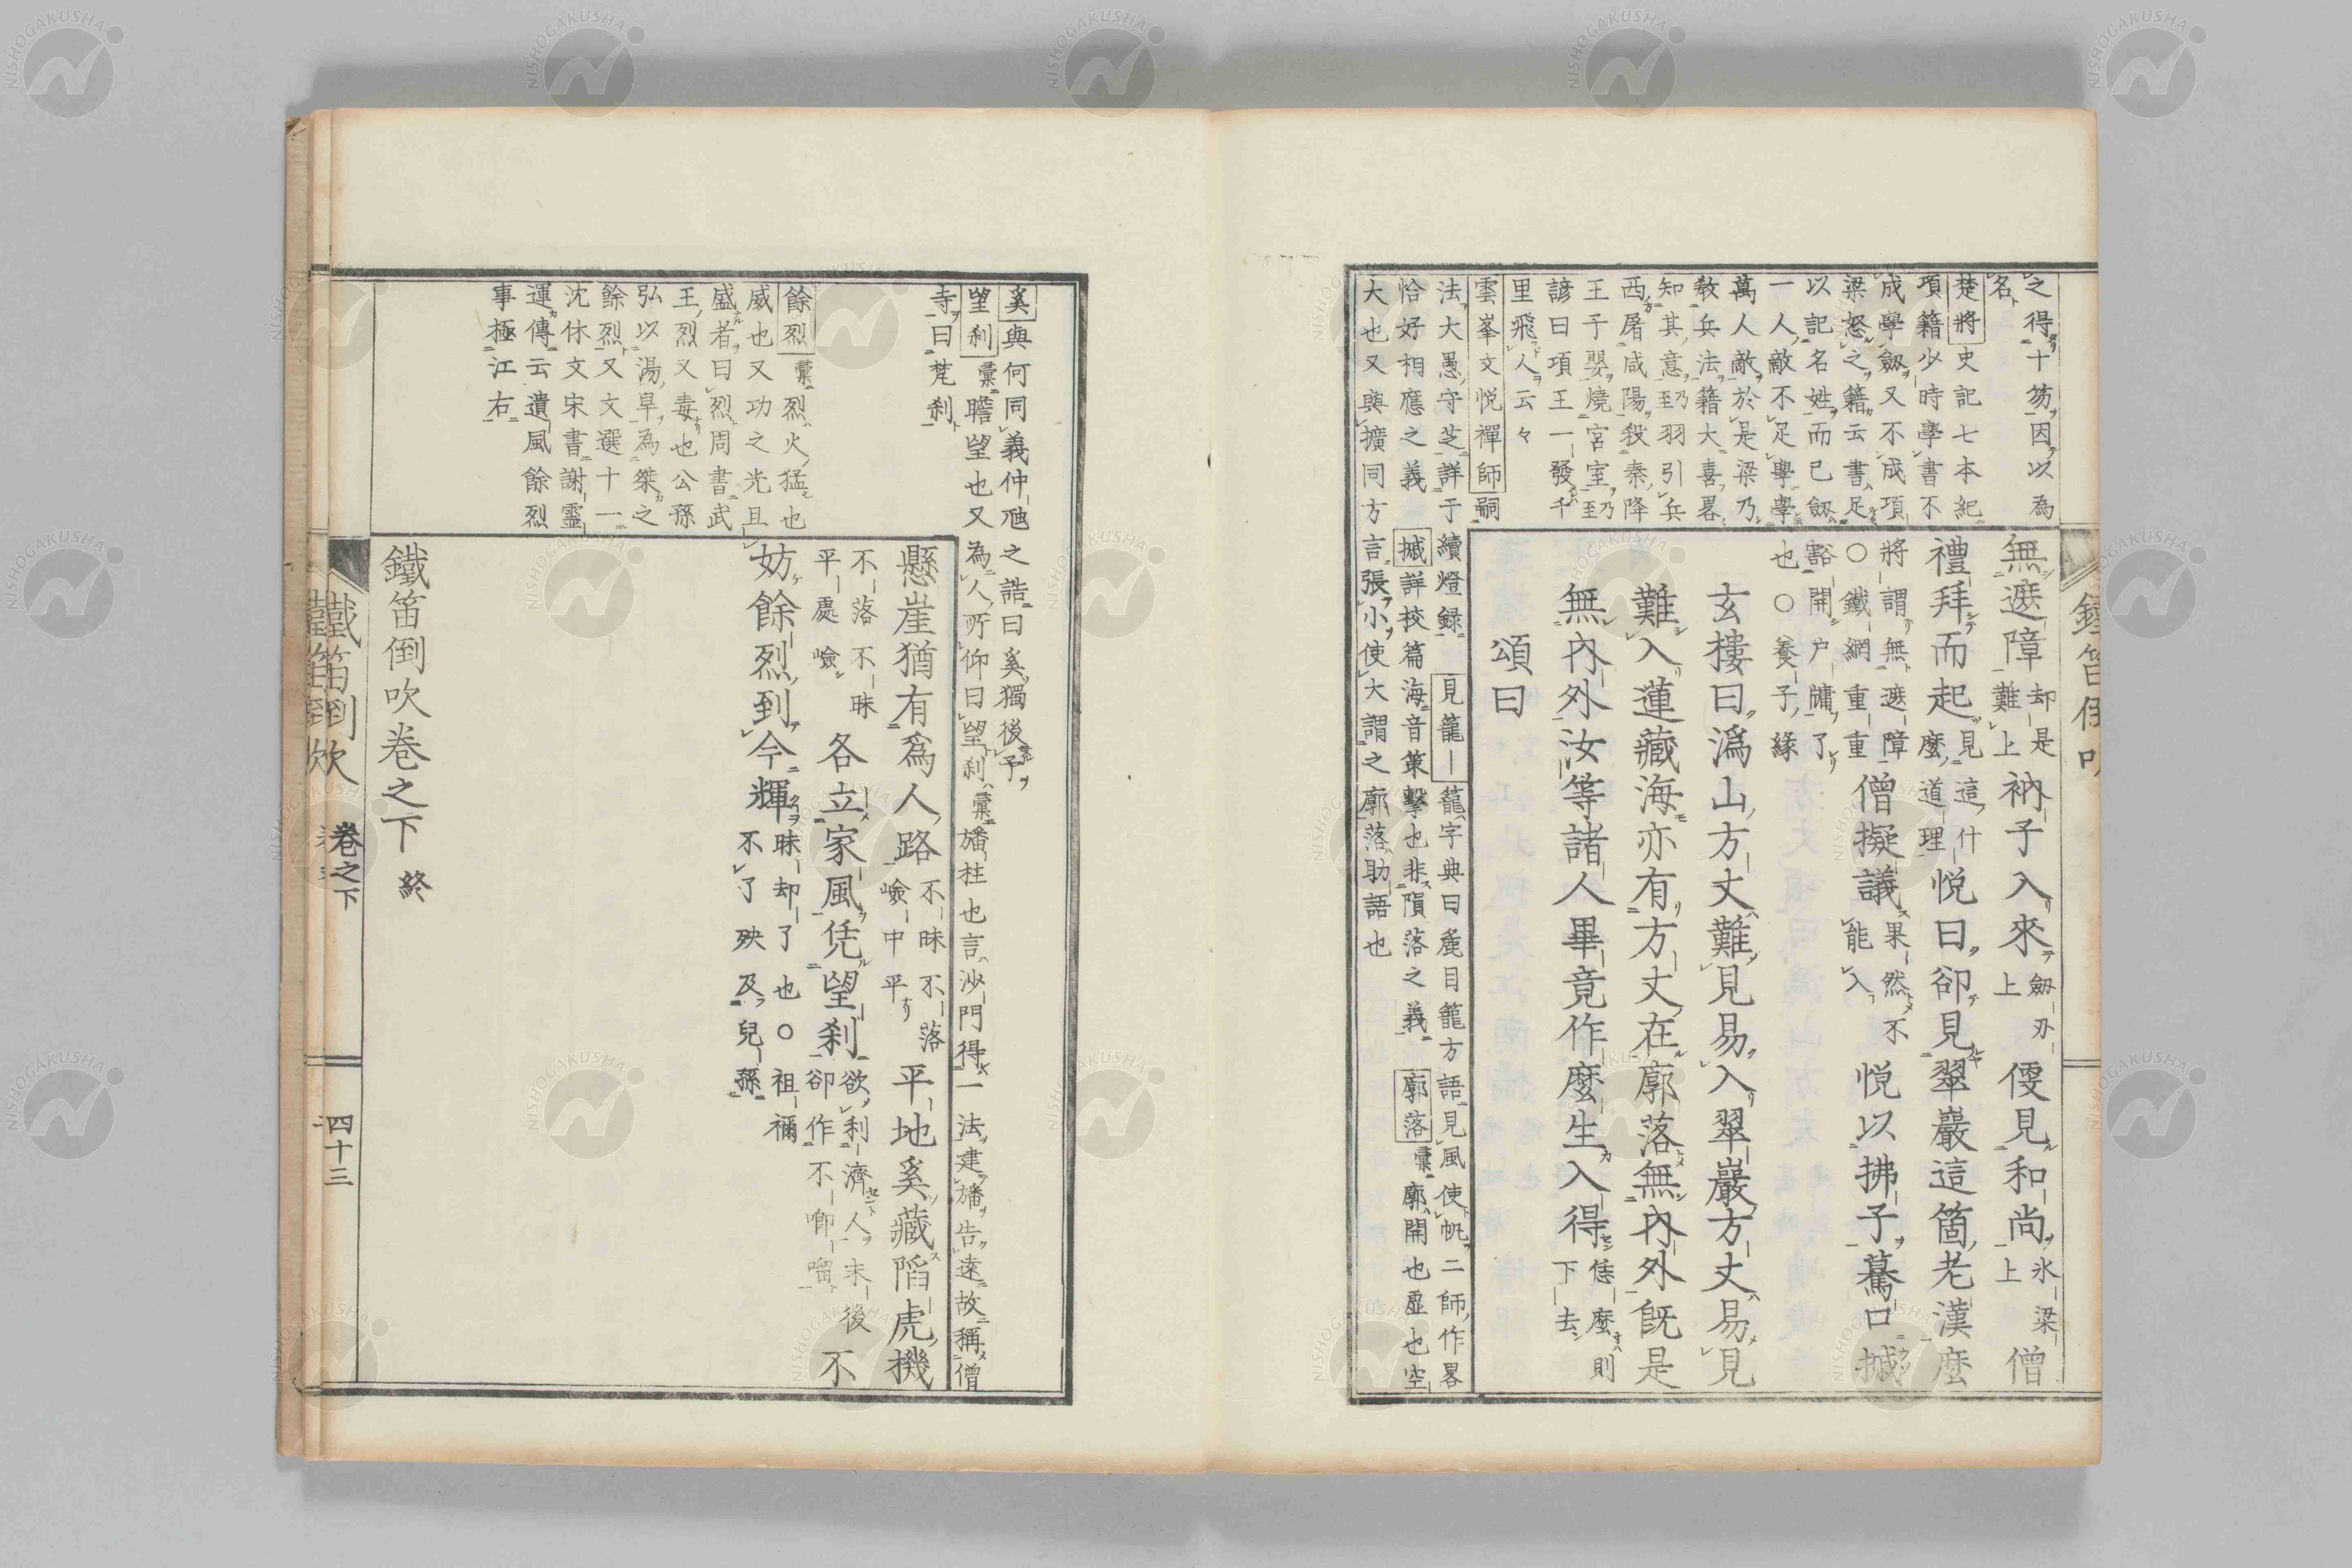 之得十笏因以為
名
楚將史記七本紀
項籍少時學書不
成學劔又不成項
梁怒之籍云書足
以記名姓而已劔
一人敵不足學學
萬人敵於是梁乃
教兵法籍大喜畧
知其意乃至羽引兵
西屠咸陽殺秦降
王子嬰燒宮室乃至
諺曰項王一發千
里飛人云々
雲峯文悦禪師嗣
法大愚守芝詳于續燈録 見籠—籠字典曰麁目籠方語見風使帆二師作畧
恰好相應之義 摵詳校篇海音策擊也非隕落之義 廓落彙廓開也虛也空
大也又與擴同方言張小使大謂之廓落助語也
無遮障却是難上衲子入來劔刃上便見和尚氷梁上僧
禮拜而起見這什麼道理悦曰卻見翠巖這箇老漢麼
將謂無遮障〇鐵網重重僧擬議果然不能入悦以拂子驀口摵
豁開户牖了也〇養子緣
玄樓曰潙山方丈難見易入翠巖方丈易見
難入蓮藏海亦有方丈在廓落無內外旣是
無內外汝等諸人畢竟作麼生入得恁麼則下去
頌曰
奚與何同義仲虺之誥曰奚獨後予
望刹彙瞻望也又為人所仰曰望刹彙旛柱也言沙門得一法建旛告遠故稱僧
寺曰梵刹
餘烈彙烈火猛也
威也又功之光且
盛者曰烈周書武
王烈又毒也公孫
弘以湯旱為桀之
餘烈又文選十一
沈休文宋書謝靈
運傳云遺風餘烈
事極江右
懸崖猶有爲人路不昧不落嶮中平平地奚藏陷虎機
不落不昧平處嶮各立家風凭望刹欲利濟人未後卻作不喞㗰不
妨餘烈到今輝昧却了也〇祖禰不了殃及兒孫
鐵笛倒吹卷之下 終
鐵笛倒吹
卷之下
四十三